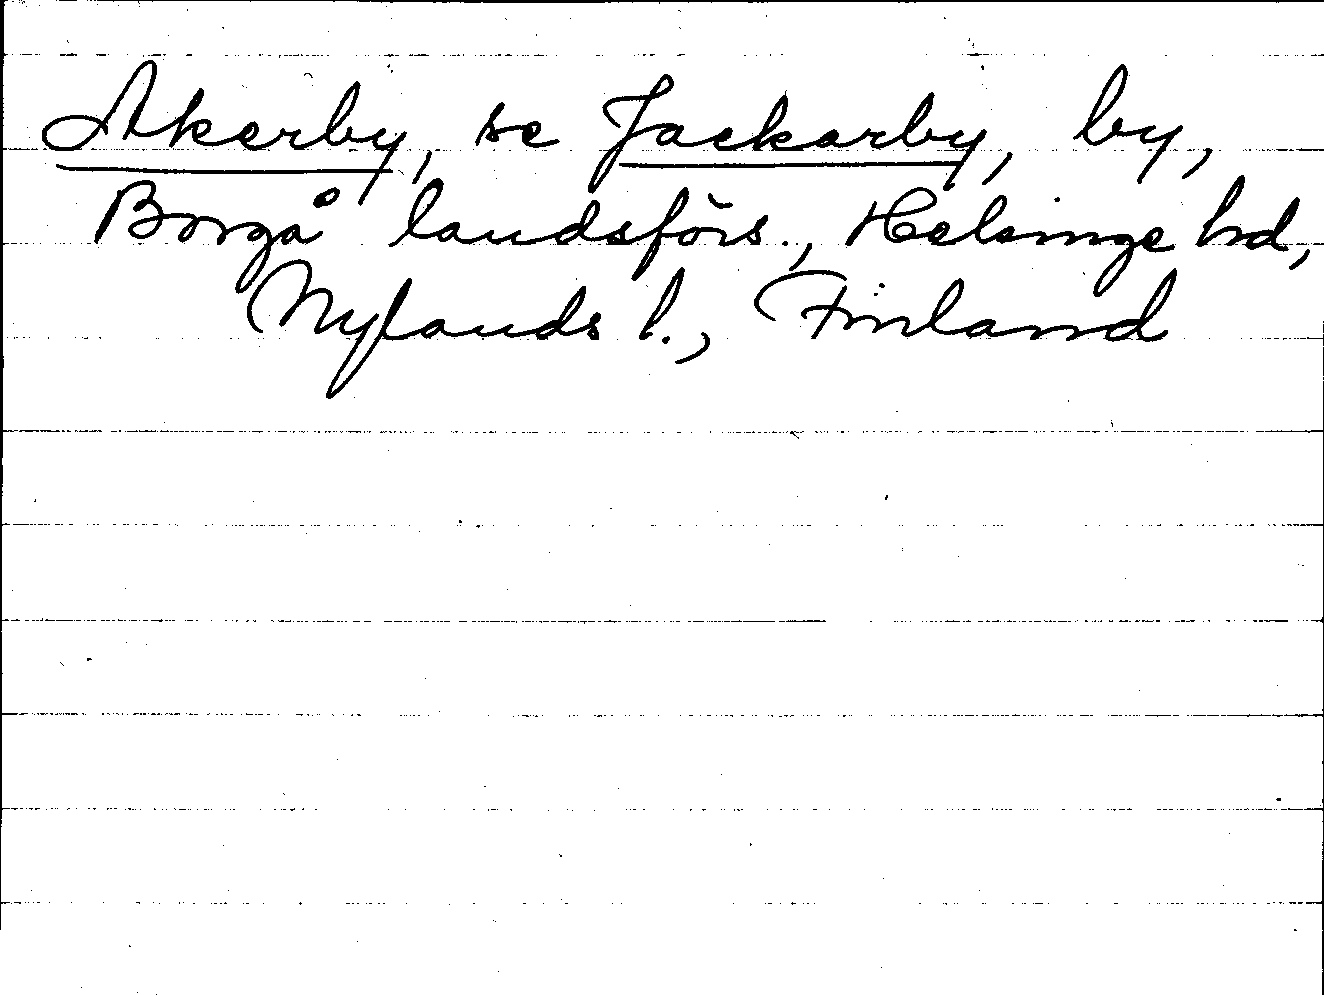 Akerby, se Jackarby, by,
Borgå landsförs., Helsinge hd,
Nylands l., Finland